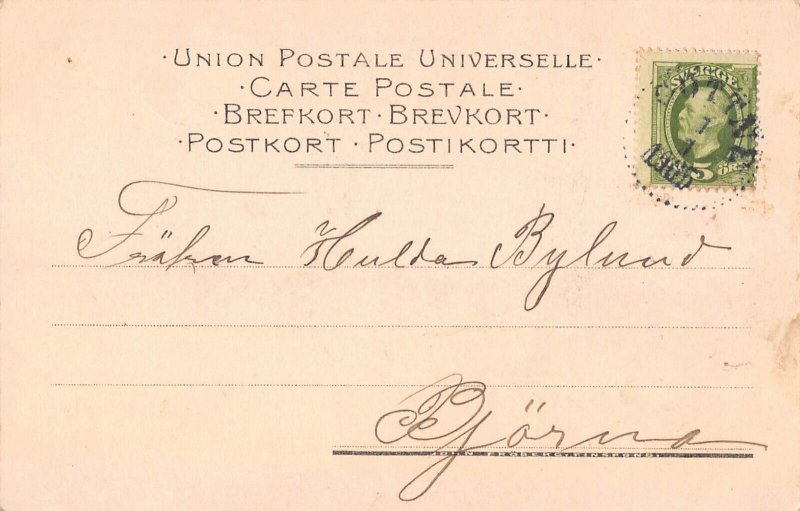 ·UNION POSTALE UNIVERSELLE·
·CARTE POSTALE·
·BREFKORT·BREVKORT·
·POSTKORT·POSTIKORTTI·
SVERIGE
5 ÖRE
1
1
Fröken Hulda Bylund
Björna
JOHN FRÖBERG, FINSPONG.